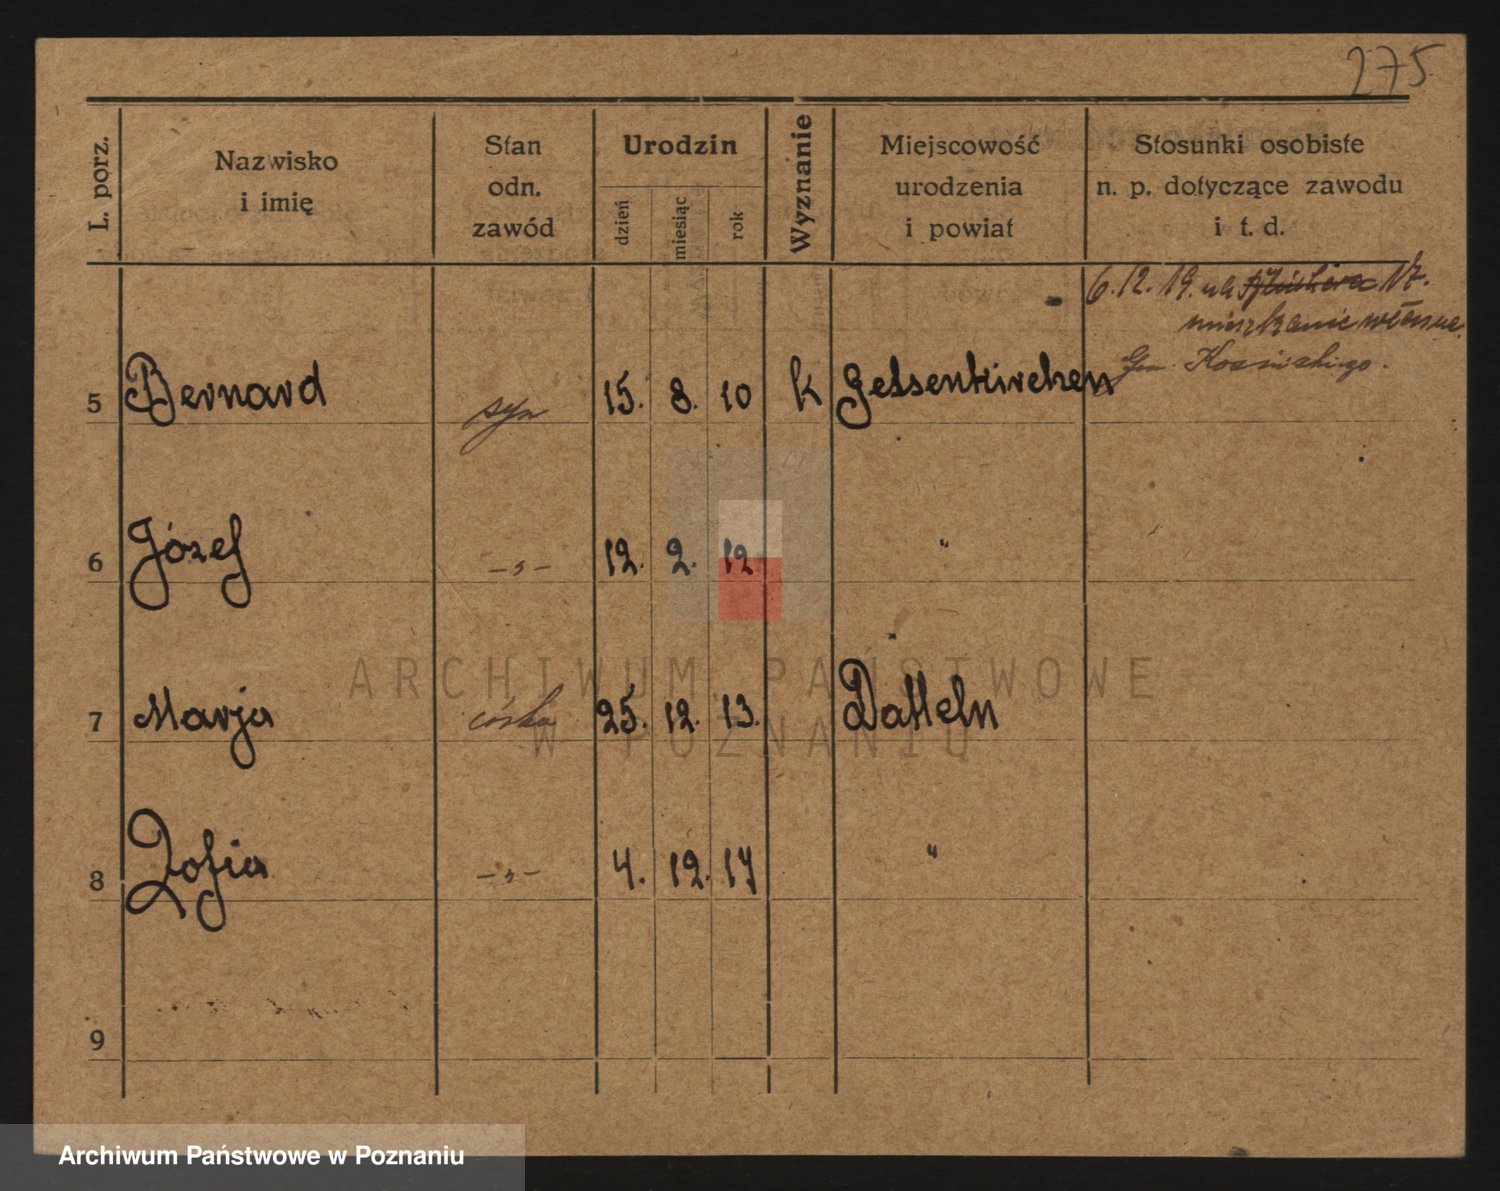 275
L. porz.
Nazwisko
i imię
Stan
odn.
zawód
Urodzin
dzień
miesiąc
rok
Wyznanie
Miejscowość
urodzenia
i powiat
Stosunki osobiste
n. p. dotyczące zawodu
i t. d.
6.12.19. ul. 17.
mieszkanie własne
Gen. Kosińskiego.
5 Bernard syn 15. 8. 10 k Gelsenkirchen
6 Józef –„– 12. 2. 12. "
7 Marja córka 25. 12. 13. Datteln
8 Zofia –„– 4. 12. 17 "
9
ARCHIWUM PAŃSTWOWE
W POZNANIU
Archiwum Państwowe w Poznaniu